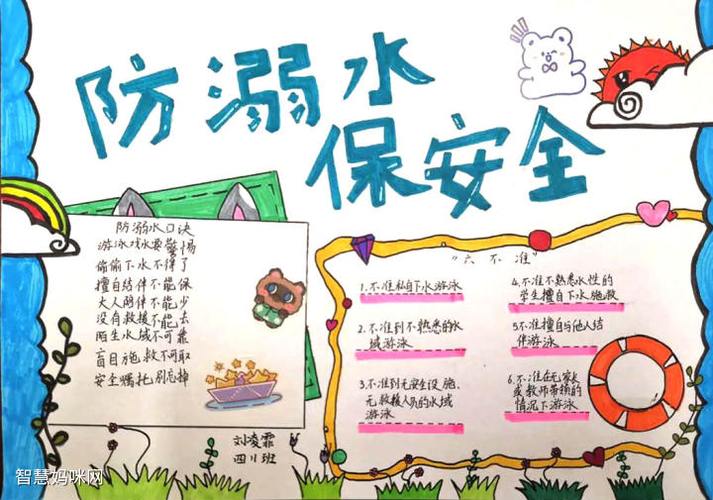 防溺水
保安全
防溺水口诀
游泳戏水要警惕
偷偷下水不得了
擅自结伴不能保
大人陪伴不能少
没有救援不能去
陌生水域不可靠
盲目施救不可取
安全嘱托别忘掉
刘凌霏
四11班
“六不准”
1.不准私自下水游泳
2.不准到不熟悉的水
域游泳
3.不准到无安全设施、
无救援人员的水域
游泳
4.不准不熟悉水性的
学生擅自下水施救
5.不准擅自与他人结
伴游泳
6.不准在无家长
或教师带领的
情况下游泳
智慧妈咪网